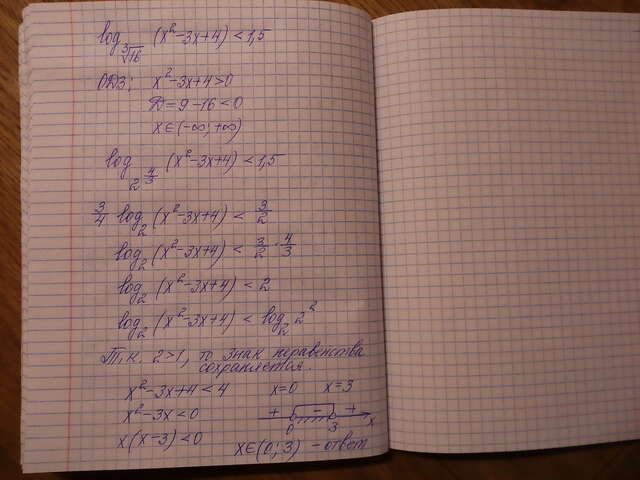 log_∛16 (x²-3x+4) < 1,5
ОДЗ: x²-3x+4>0
Д=9-16<0
x∈(-∞;+∞)
log_2^(4/3) (x²-3x+4) < 1,5
3/4 log_2 (x²-3x+4) < 3/2
log_2 (x²-3x+4) < 3/2 · 4/3
log_2 (x²-3x+4) < 2
log_2 (x²-3x+4) < log_2 2²
Т.к. 2>1, то знак неравенства
сохраняется.
x²-3x+4<4
x²-3x<0
x(x-3)<0
x=0 x=3
+ - +
0 3 x
x∈(0;3) - ответ